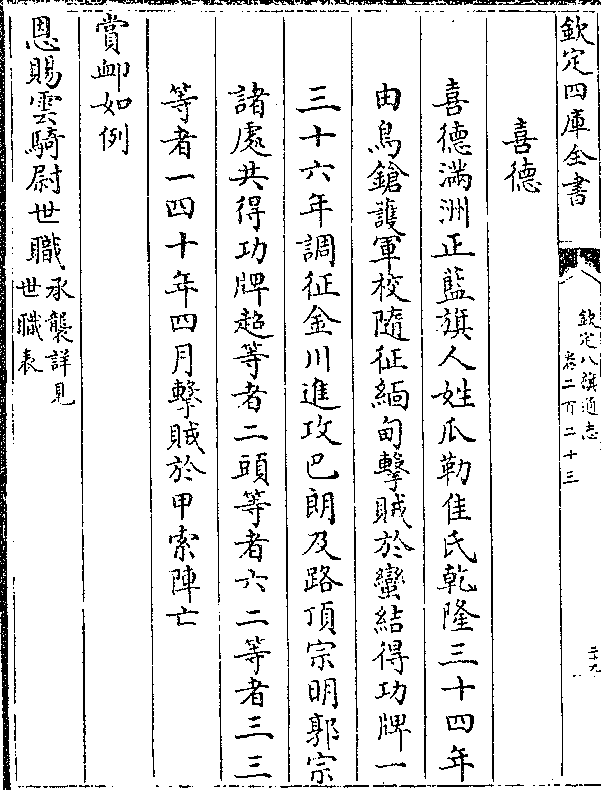 欽定四庫全書
欽定八旗通志
卷二百二十三
二十九
喜德
喜德滿洲正藍旗人姓瓜勒佳氏乾隆三十四年
由鳥鎗護軍校隨征緬甸擊賊於蠻結得功牌一
三十六年調征金川進攻巴朗及路頂宗明郭宗
諸處共得功牌超等者二頭等者六二等者三三
等者一四十年四月擊賊於甲索陣亡
賞卹如例
恩賜雲騎尉世職承襲詳見
世職表